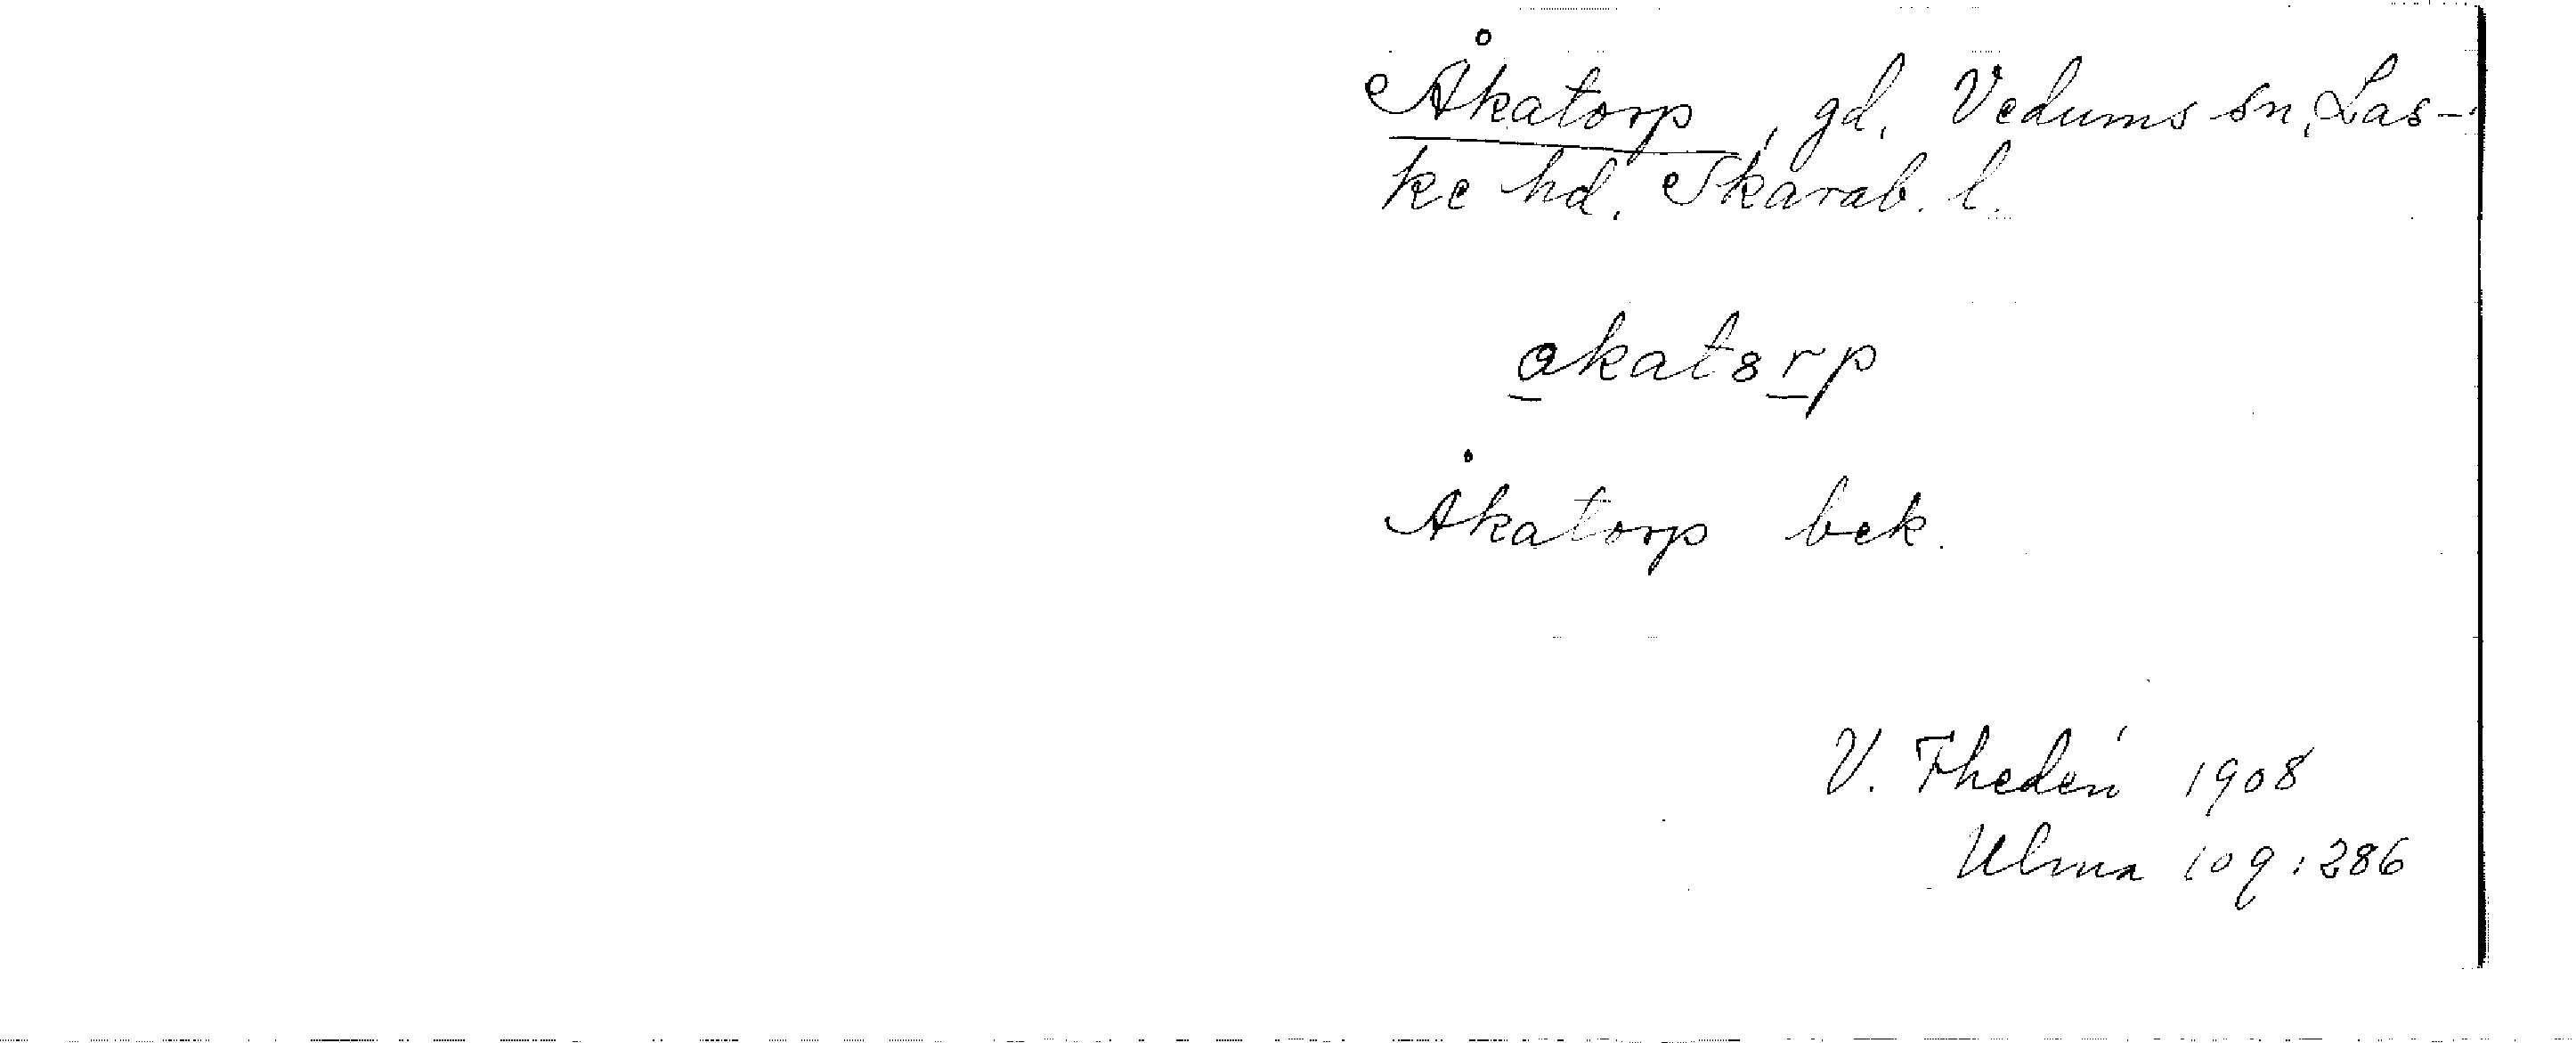 Åkatorp, gd. Vedums sn, Las-
ke hd. Skarab. l.
akatsrp
Åkatorp bek.
V. Thedén 1908
Ulma 109:286